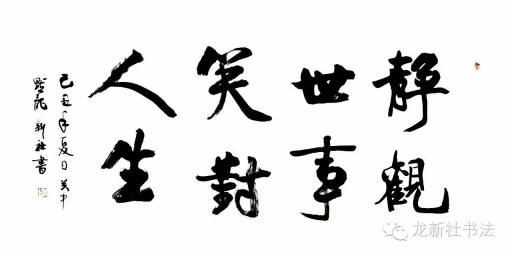 靜觀
世事
笑對
人生
己丑年夏日關中
龍新社書
龙新社书法